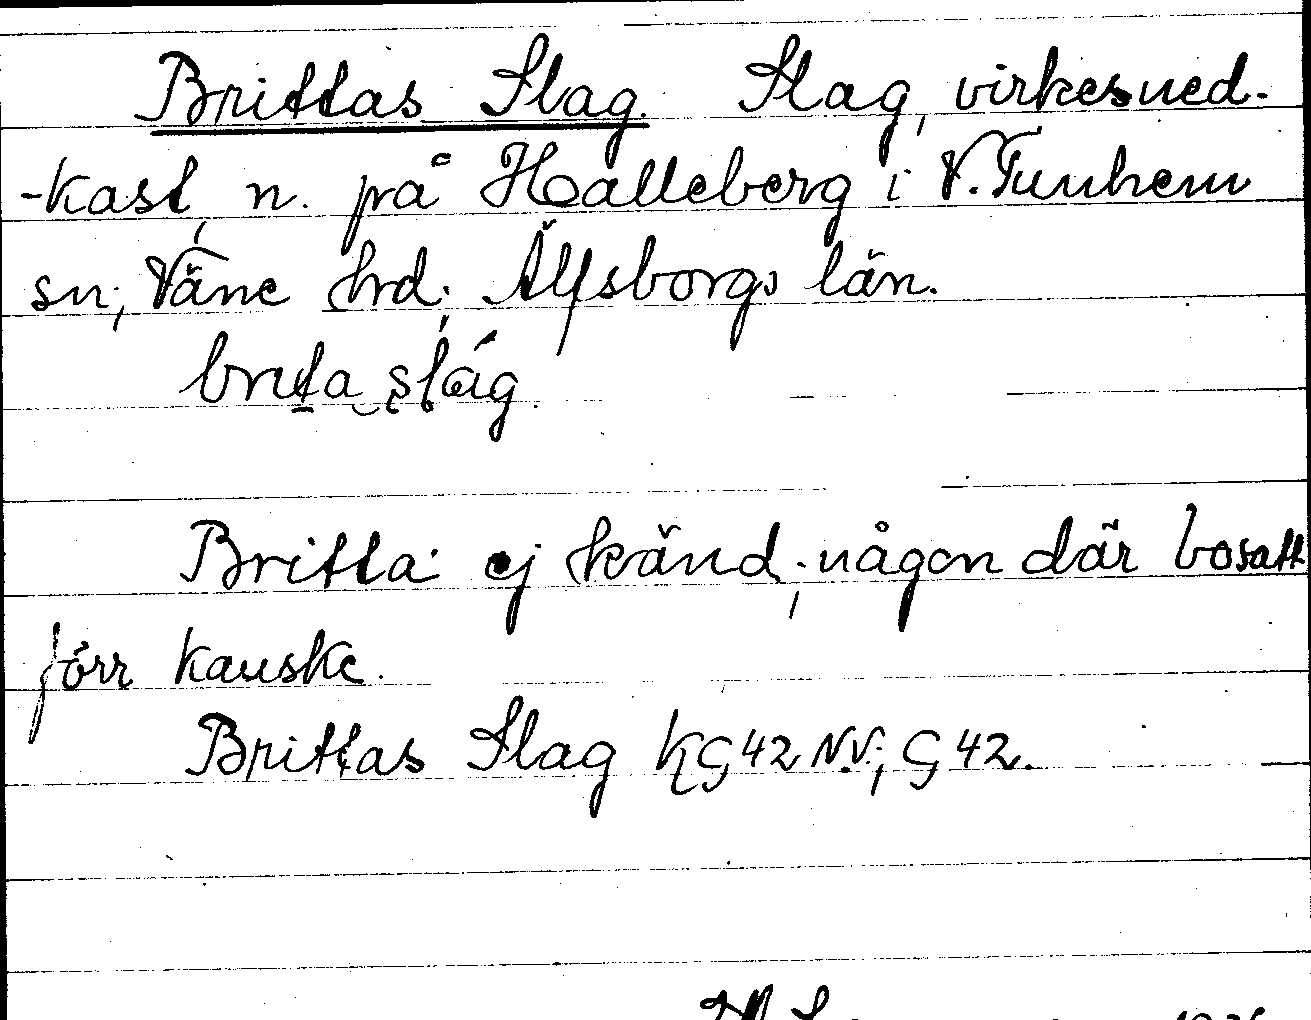 Brittas Slag. Slag, virkesned-
-kast, n. på Halleberg i V. Tunhem
sn; Väne hrd; Älfsborgs län.
Britta ej känd; någon där bosatt
förr kanske.
Brittas Slag KG42 N.V; G 42.